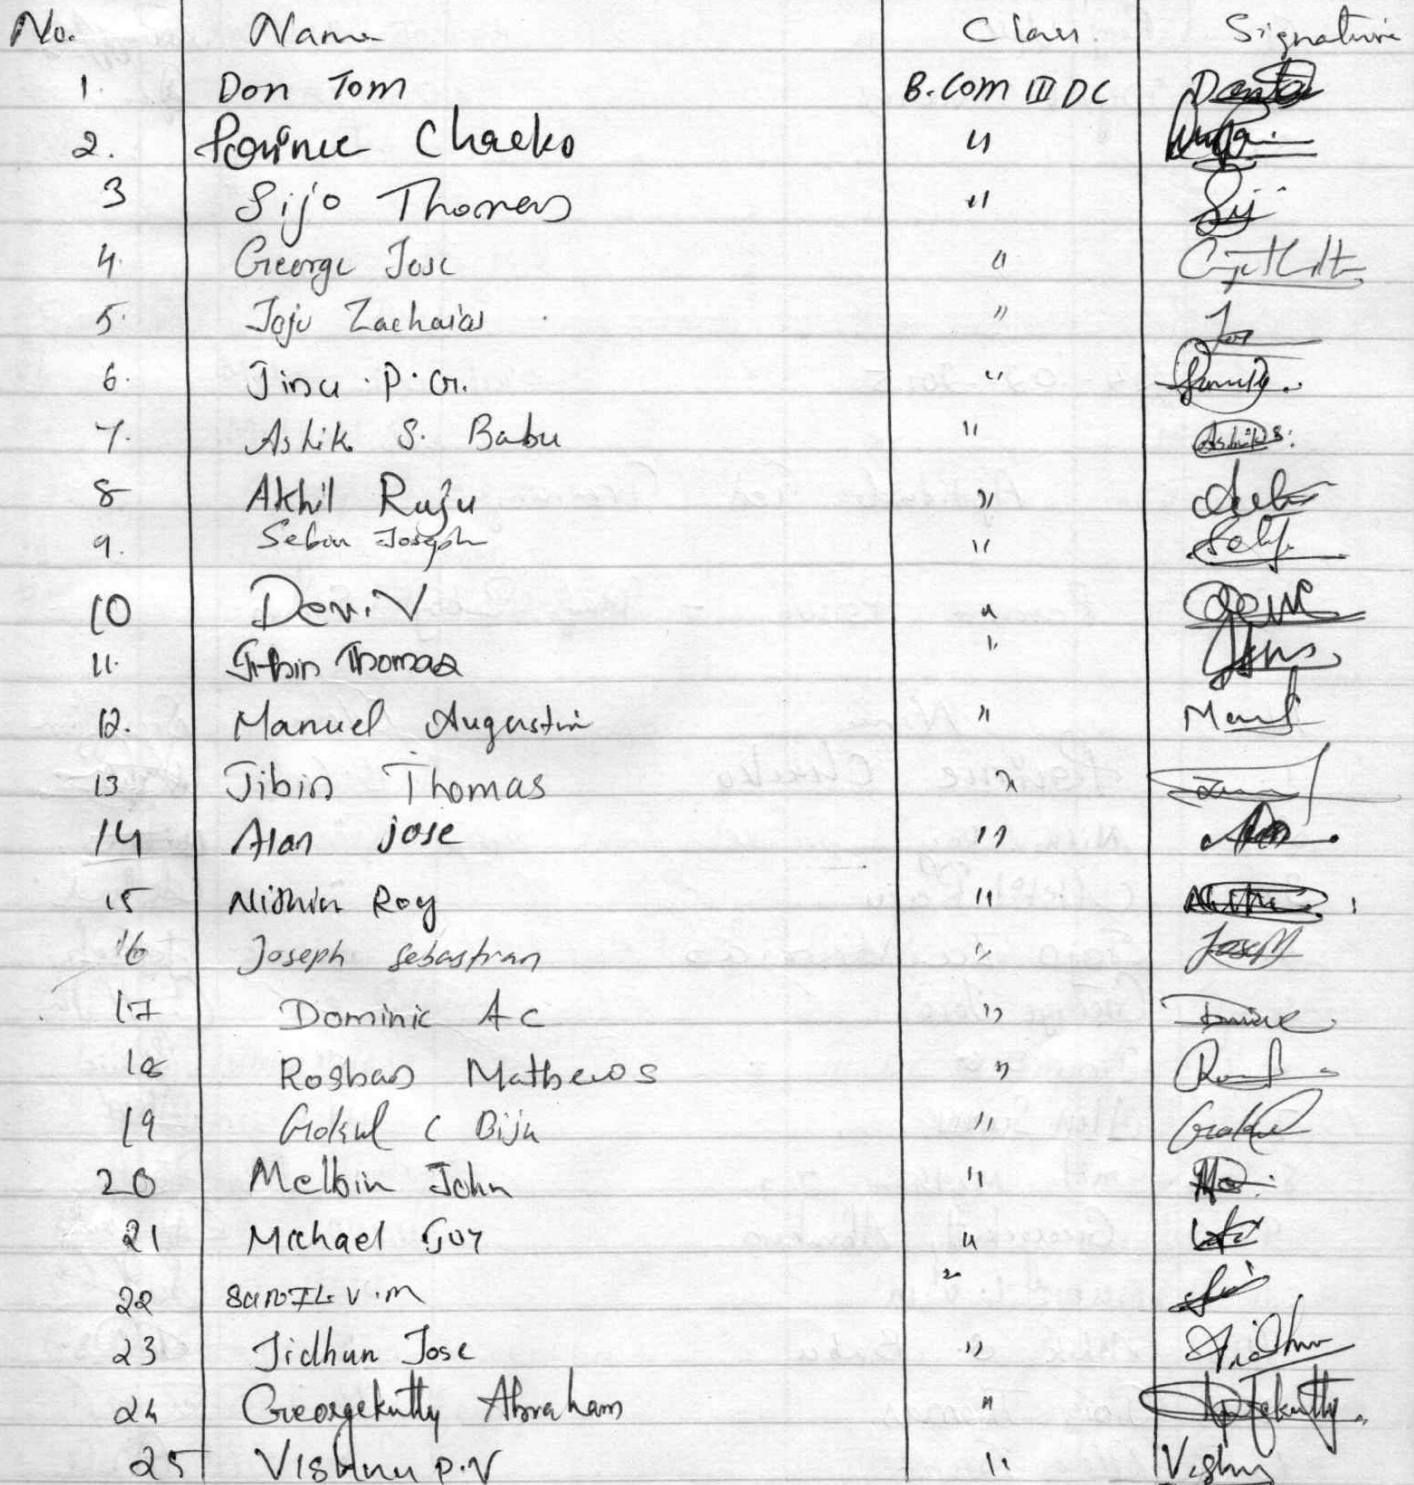 No. Name Class Signature
1. Don Tom B.Com III DC
2. Prince Chacko "
3 Sijo Thomas "
4. George Jose "
5. Jaju Zacharias "
6. Jinu . P. G. "
7. Ashik S. Babu " Ashik S.
8 Akhil Raju "
9. Sebin Joseph "
10 Devi. V "
11. Jibin Thomas "
12. Manuel Augustin "
13 Jibin Thomas "
14 Alan jose "
15 Nithin Roy "
16 Joseph Sebastian " Joseph
17 Dominic A C "
18 Roshan Mathews "
19 Gokul C Biju " Gokul
20 Melbin John "
21 Michael Joy "
22 SUNIL V.M "
23 Jidhun Jose " Jidhun
24 Georgekutty Abraham "
25 Vishnu P.V " Vishnu